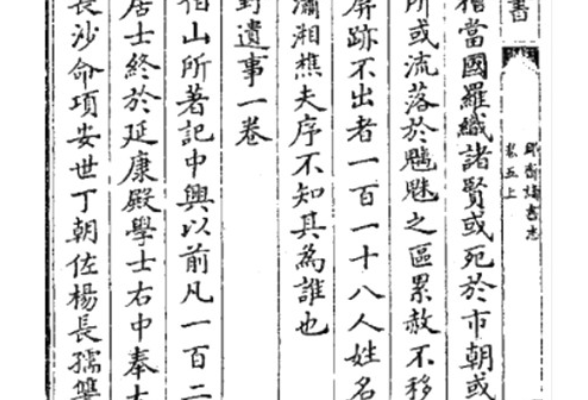 書
郡齋讀書志
卷五上
檜當國羅織諸賢或死於市朝或
所或流落於魑魅之區累赦不移
屏跡不出者一百一十八人姓名
瀟湘樵夫序不知其為誰也
對遺事一卷
伯山所著記中興以前凡一百二
居士終於延康殿學士右中奉大
長沙命項安世丁朝佐楊長孺